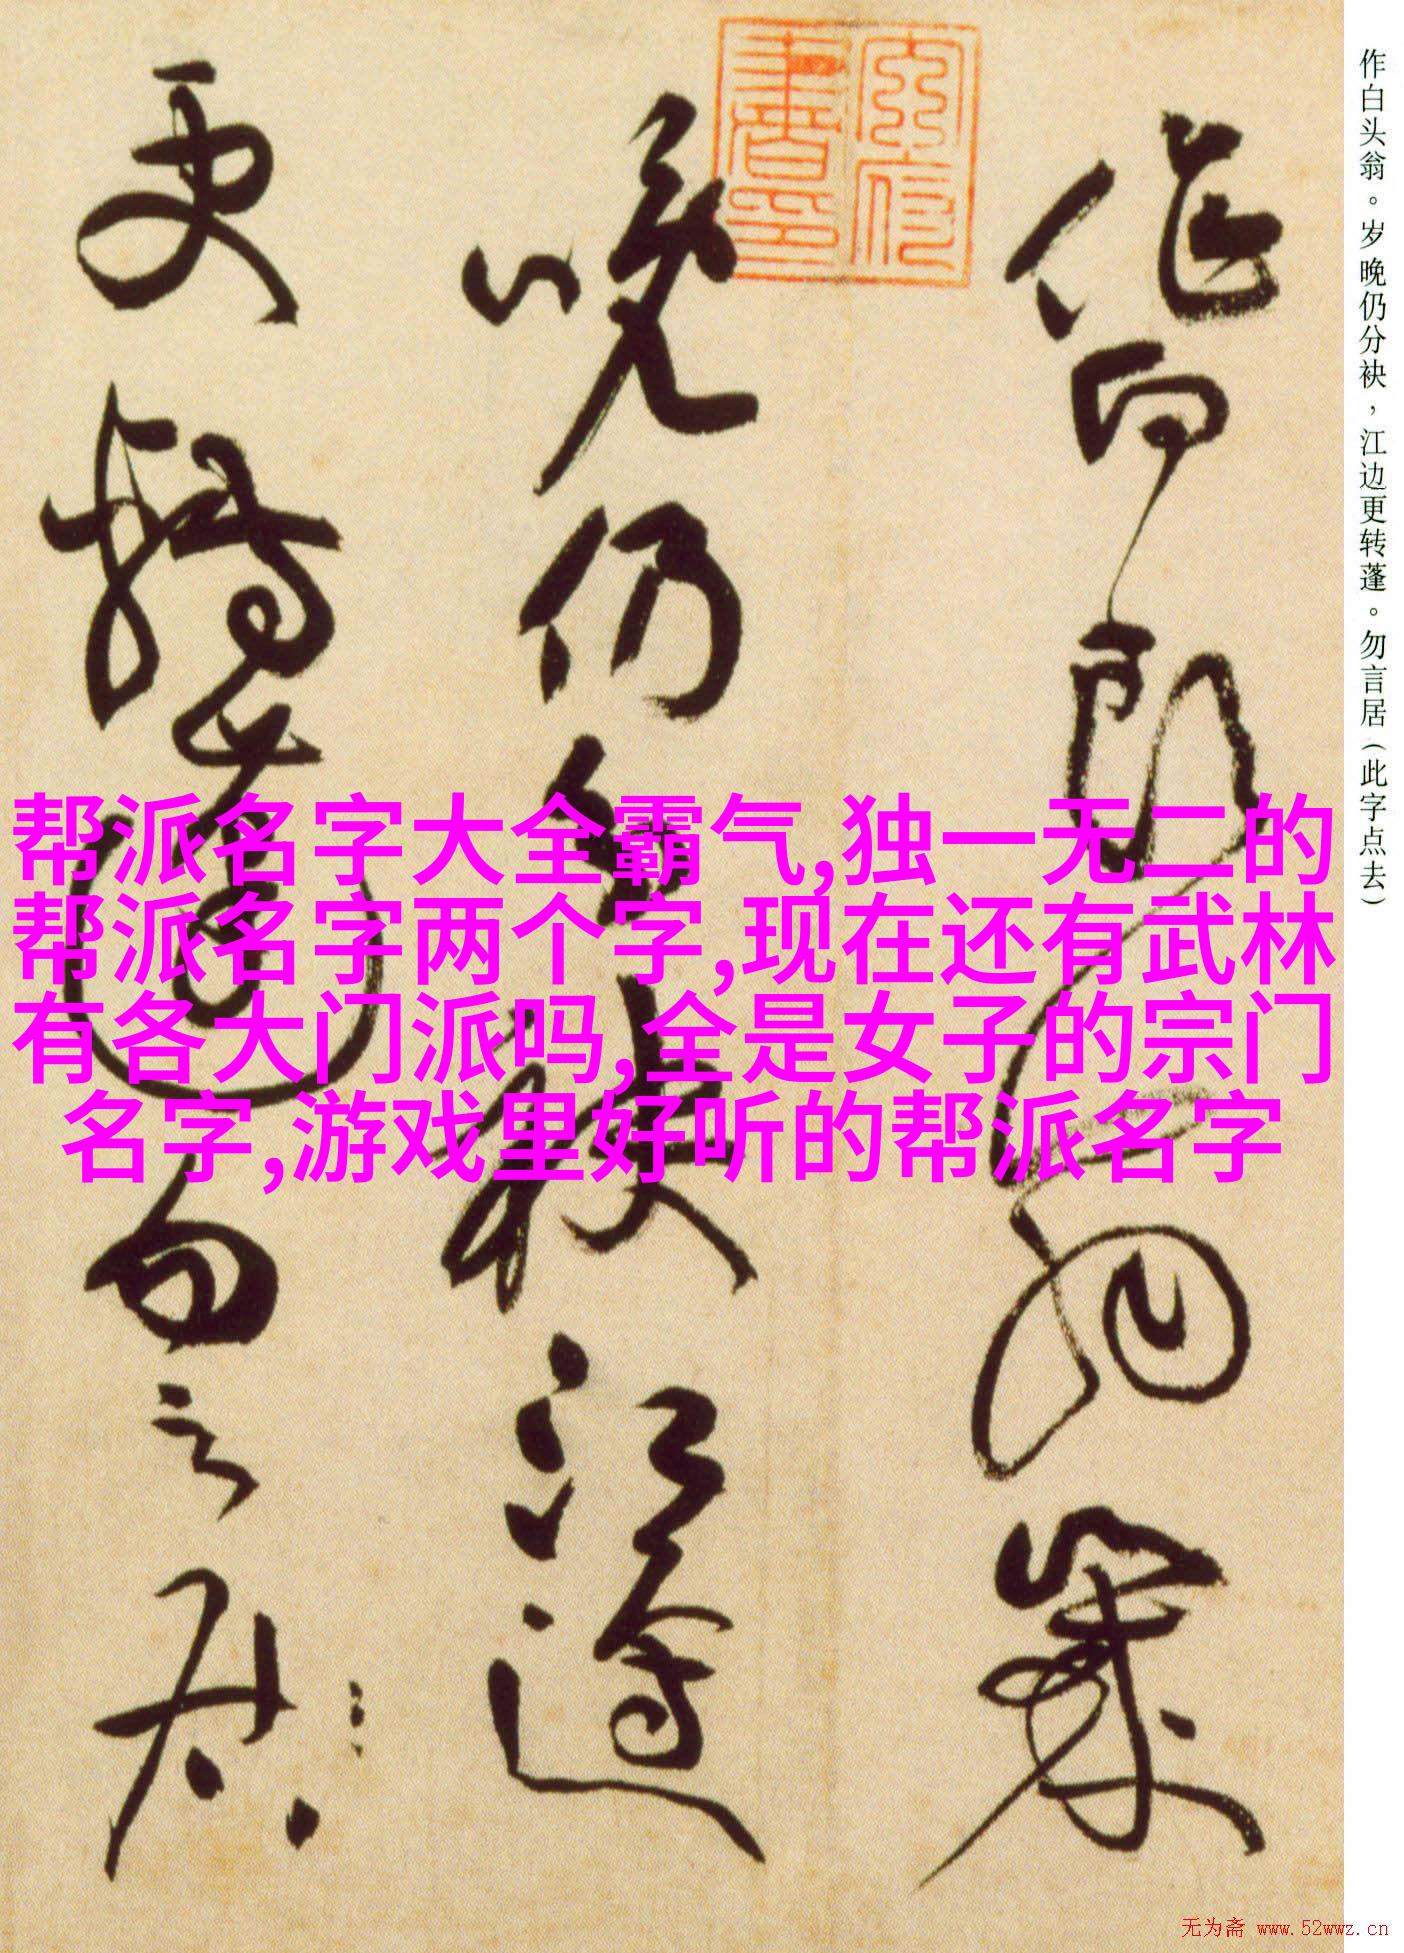 作白头翁。岁晚仍分袂，江边更转蓬。勿言居（此字点去）
作白头翁岁
晚仍分袂江边
更转蓬勿言居
帮派名字大全霸气,独一无二的
帮派名字两个字,现在还有武林
有各大门派吗,全是女子的宗门
名字,游戏里好听的帮派名字
无为斋 www.52wwz.cn